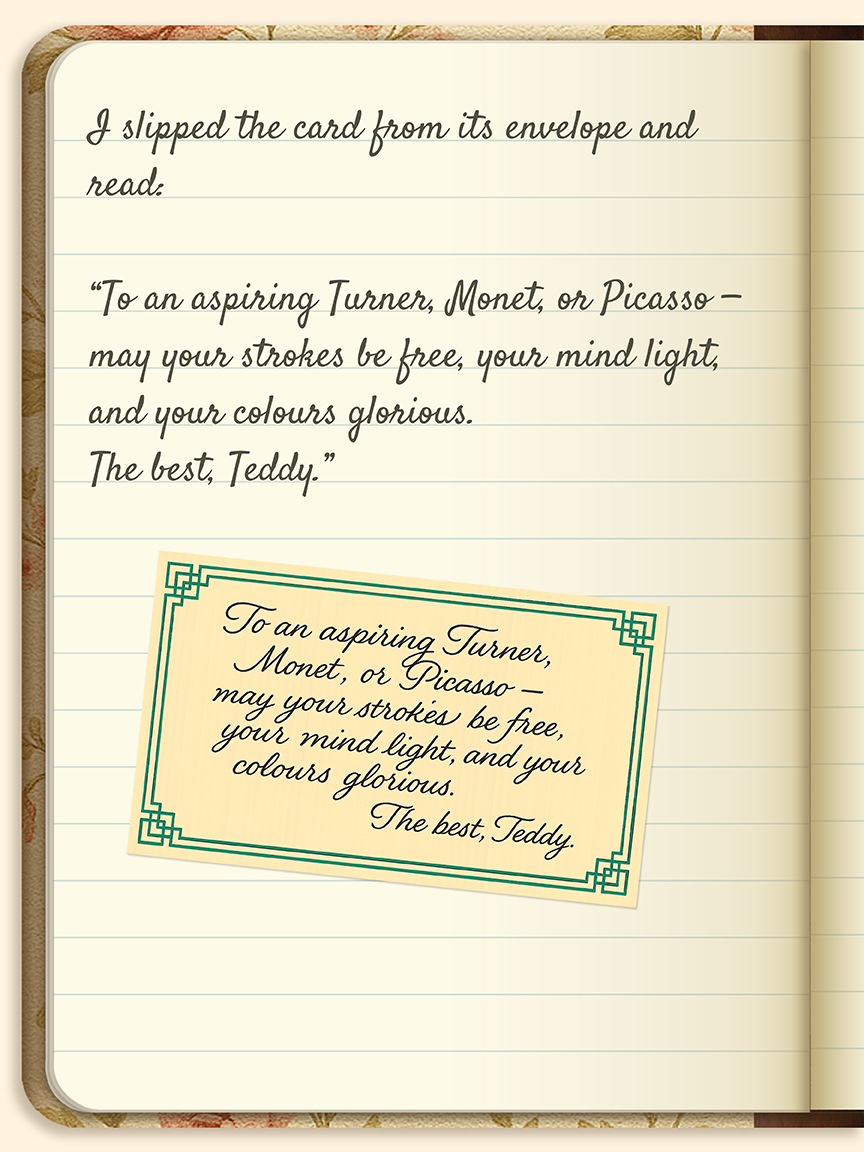 I slipped the card from its envelope and
read:
“To an aspiring Turner, Monet, or Picasso –
may your strokes be free, your mind light,
and your colours glorious.
The best, Teddy.”
To an aspiring Turner,
Monet, or Picasso –
may your strokes be free,
your mind light, and your
colours glorious.
The best, Teddy.